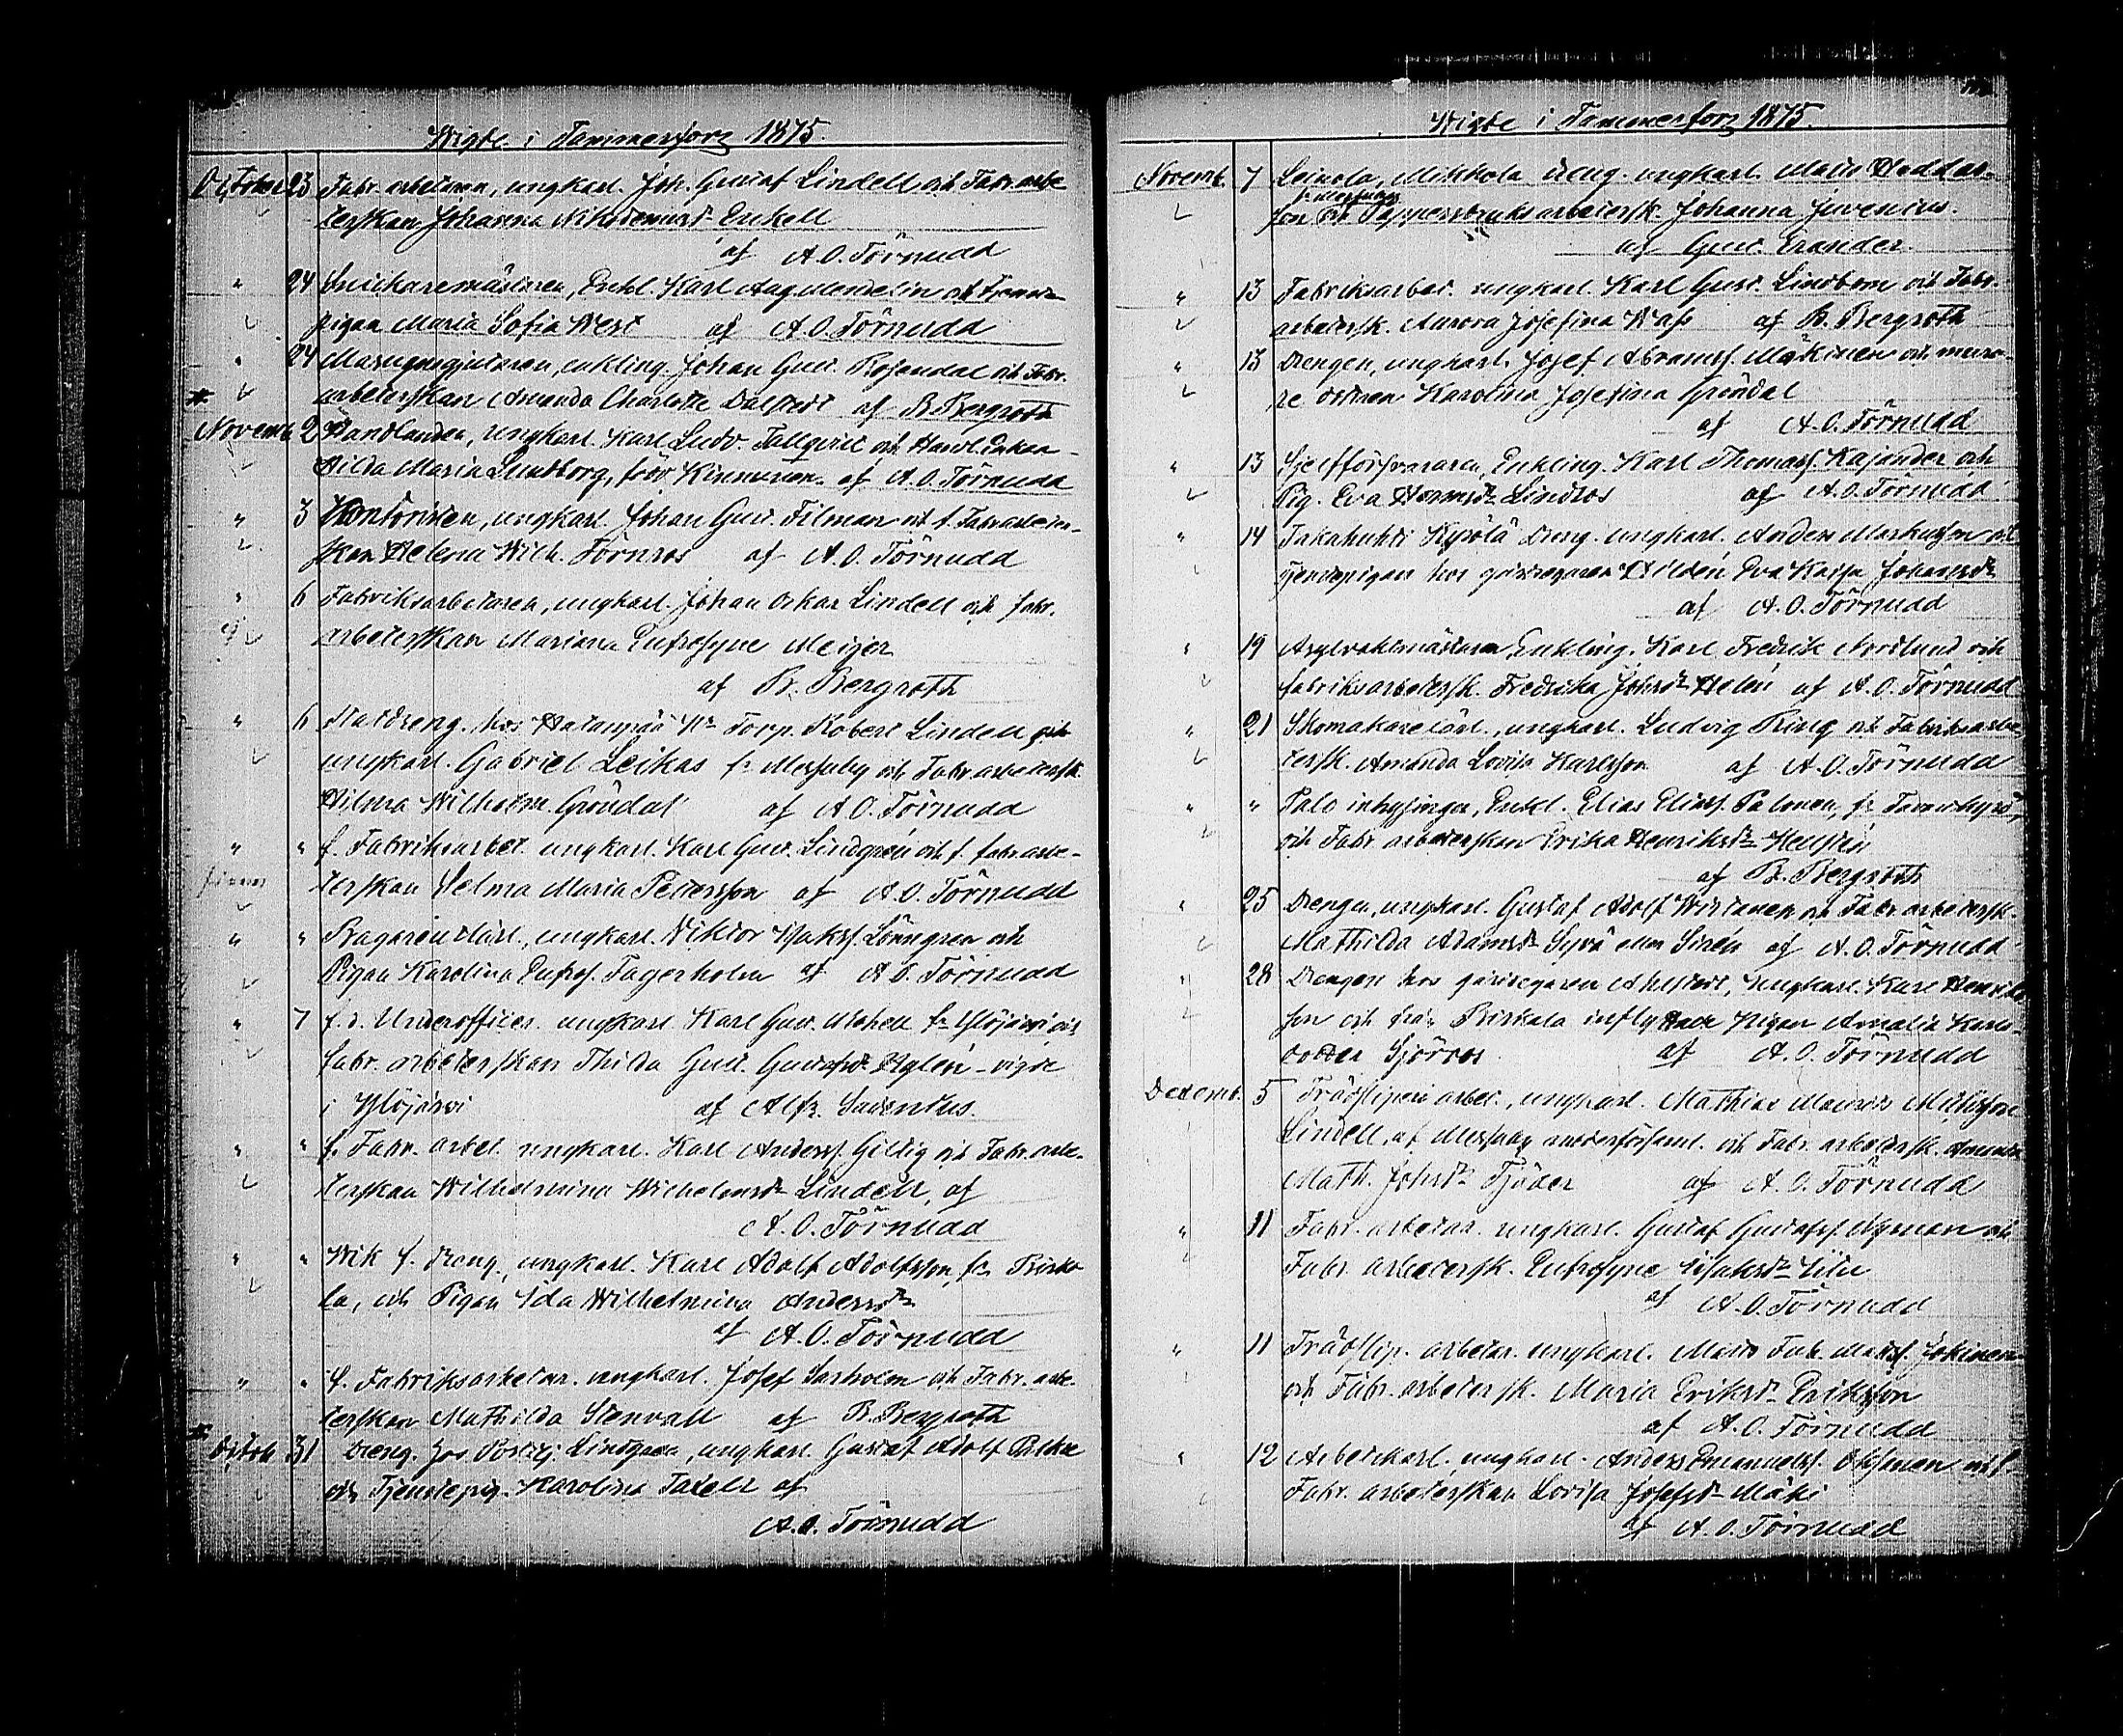 Wigde i Tammerfors 1875.
October 23 Fabr. arbetaren, ungkarl. Joh. Gustaf Lindell och Fabr. arbe
terskan Johanna Nikodemusdr Enkell
af A. O. Törnudd
" 24 Snickaremästaren, Enkl. Karl Aug. Mendelin och tjenste
pigan Maria Sofia West af A. O. Törnudd
" 24 Masugnsgjutaren, enkling. Johan Gust. Rosendal och Fabr.
arbeterskan Amanda Charlotta Dalstedt af B. Bergroth
Novemb. 2 Handlanden, ungkarl. Karl Ludv. Tallqvist och Handl. Enkan
Hilda Maria Lundborg, född Kinnunen af A. O. Törnudd
" 3 Kontoristen, ungkarl. Johan Gust. Filman och f. Fabr. arbeter-
skan Helena Wilh. Törnros af A. O. Törnudd
" 6 Fabriksarbetaren, ungkarl. Johan Oskar Lindell och fabr.
arbeterskan Mariana Eufrosyne Meijer
af B. Bergroth
" 6 Statdreng. hos Hatanpää Torp. Robert Lindell
ungkarl. Gabriel Leikas fr Messuby och Fabr. arbetersk.
Hilma Wilhelm. Gröndal af A. O. Törnudd
" " f. Fabriksarbet. ungkarl. Karl Gust. Lindgrén och f. fabr. arbe-
terskan Selma Maria Pettersson af A. O. Törnudd
" " Bagerie lärl., ungkarl. Wiktor Isakss. Lönngren och
Pigan Karolina Eufros. Fagerholm af A. O. Törnudd
" 7 f. d. Underofficer. ungkarl Karl Gust. Mohell fr Ylöjärvi och
fabr. arbeterskan Thilda Gust. Gustafsdr Nylén – vigde
i Ylöjärvi af Alfr. Sadenius.
" " f. Fabr. arbet. ungkarl. Karl Anderss. Gillig och Fabr. arbe-
terskan Wilhelmina Wilhelmsdr Lindell, af
A. O. Törnudd
" " Wik f. Dreng., ungkarl. Karl Adolf Adolfsson fr Birka
la, och Pigan Ida Wilhelmina Andersdr
af A. O. Törnudd
" " f. Fabriksarbetar. ungkarl. Josef Saxholm och Fabr. arbe-
terskan Mathilda Stenvall af B. Bergroth
Octob 31 Dreng. hos Lindgren, ungkarl. Gustaf Adolf
och Tjenstepig. Karolina Taxell af
A. O. Törnudd
Wigde i Tammerfors 1875.
Novemb. 7 Leinola, Mikkola dreng. ungkarl. Matts Heddas-
fr Messuby
son och Pappersbruks arbetersk. Johanna Juvenius.
af Gust. Erander.
" 13 Fabriksarbet. ungkarl. Karl Gust. Lindbom och Fabr.
arbetersk. Aurora Josefina Wass af B. Bergroth
" 13 Drengen, ungkarl. Josef Abramss. Mäkinen och mura-
re dottren Karolina Josefina Gröndal
af A. O. Törnudd
" 13 Sjelfförsvararen, Enkling. Karl Thomass. Kajander och
Pig. Eva Lindros af A. O. Törnudd
" 14 Takahuhti Kyrölä Dreng. ungkarl. Anders Markusson och
Tjenstepigan hos gårdsegaren Hildén Eva Kaisa Johansdr
af A. O. Törnudd
" 19 Asylvaktmästaren, Enkling. Karl Fredrik Nordlund och
fabriksarbetersk. Fredrika Johsdr Helén af A. O. Törnudd
" 21 Skomakarelärl., ungkarl. Ludvig Ring och Fabriksarbe
tersk. Amanda Lovisa Karlsson af A. O. Törnudd
" " Palo inhysingen, Enkl. Elias Eliass. Palonen, fr Tavastkyro,
och Fabr. arbeterskan Erika Henriksdr Hellstén
af B. Bergroth
" 25 Drengen, ungkarl. Gustaf Adolf Wirtanen och Fabr. arbetersk.
Mathilda Adamsdr Syvä eller Sirén af A. O. Törnudd
" 28 Drengen hos gårdsegaren Ahlstedt, ungkarl. Karl Henriks
son och från Birkala inflyttade Pigan Amalia Karls-
dotter Sjöroos af A. O. Törnudd
Decemb. 5 Trädsliperi arbet., ungkarl. Mathias
Lindell, af Messuby moderförsaml. och Fabr. arbetersk. Amanda
Math. Johsdr Tjäder af A. O. Törnudd
" 11 Fabr. arbetar. ungkarl. Gustaf Gustafss. Nyman och
Fabr. arbetersk. Eufrosyne Isaksdr
af A. O. Törnudd
" 11 Trädslip. arbetar. ungkarl. Matts Fab. Matss. Jokinen
och Fabr. arbetersk. Maria Eriksdr Eriksson
af A. O. Törnudd
" 12 Arbetskarl. ungkarl. Anders Emanuelss. och f.
Fabr. arbeterskan Lovisa Josefsdr Mäki
af A. O. Törnudd